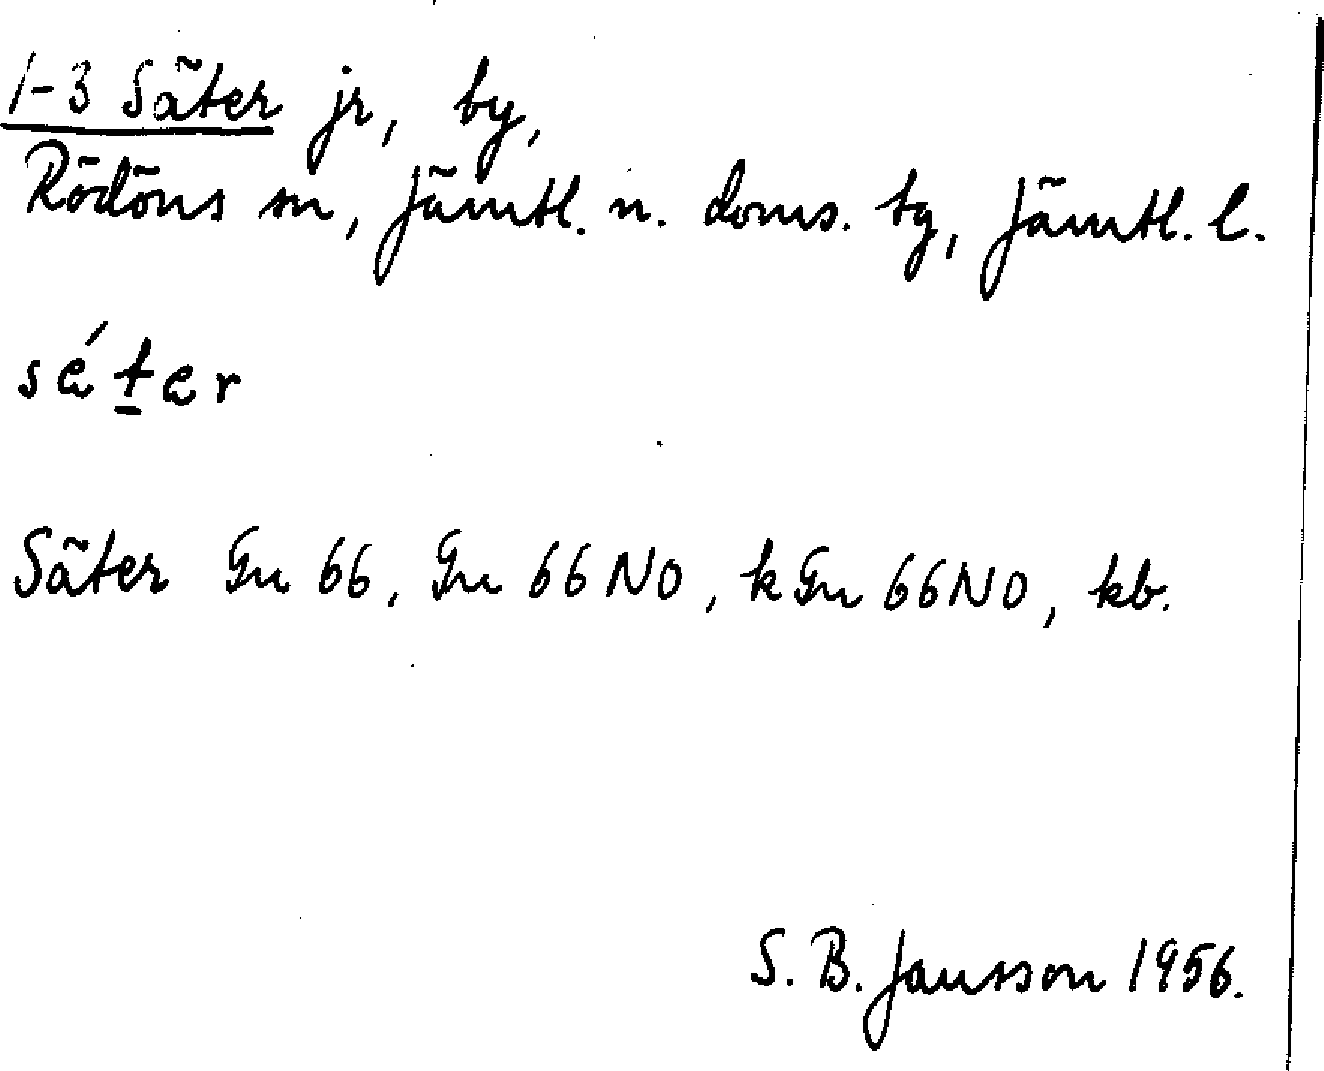 1-3 Säter jr, by,
Rödöns sn, Jämtl. n. doms. tg, Jämtl. l.
séter
Säter Gn 66, Gn 66 NO, k Gn 66 NO, kb.
S. B. Jansson 1956.